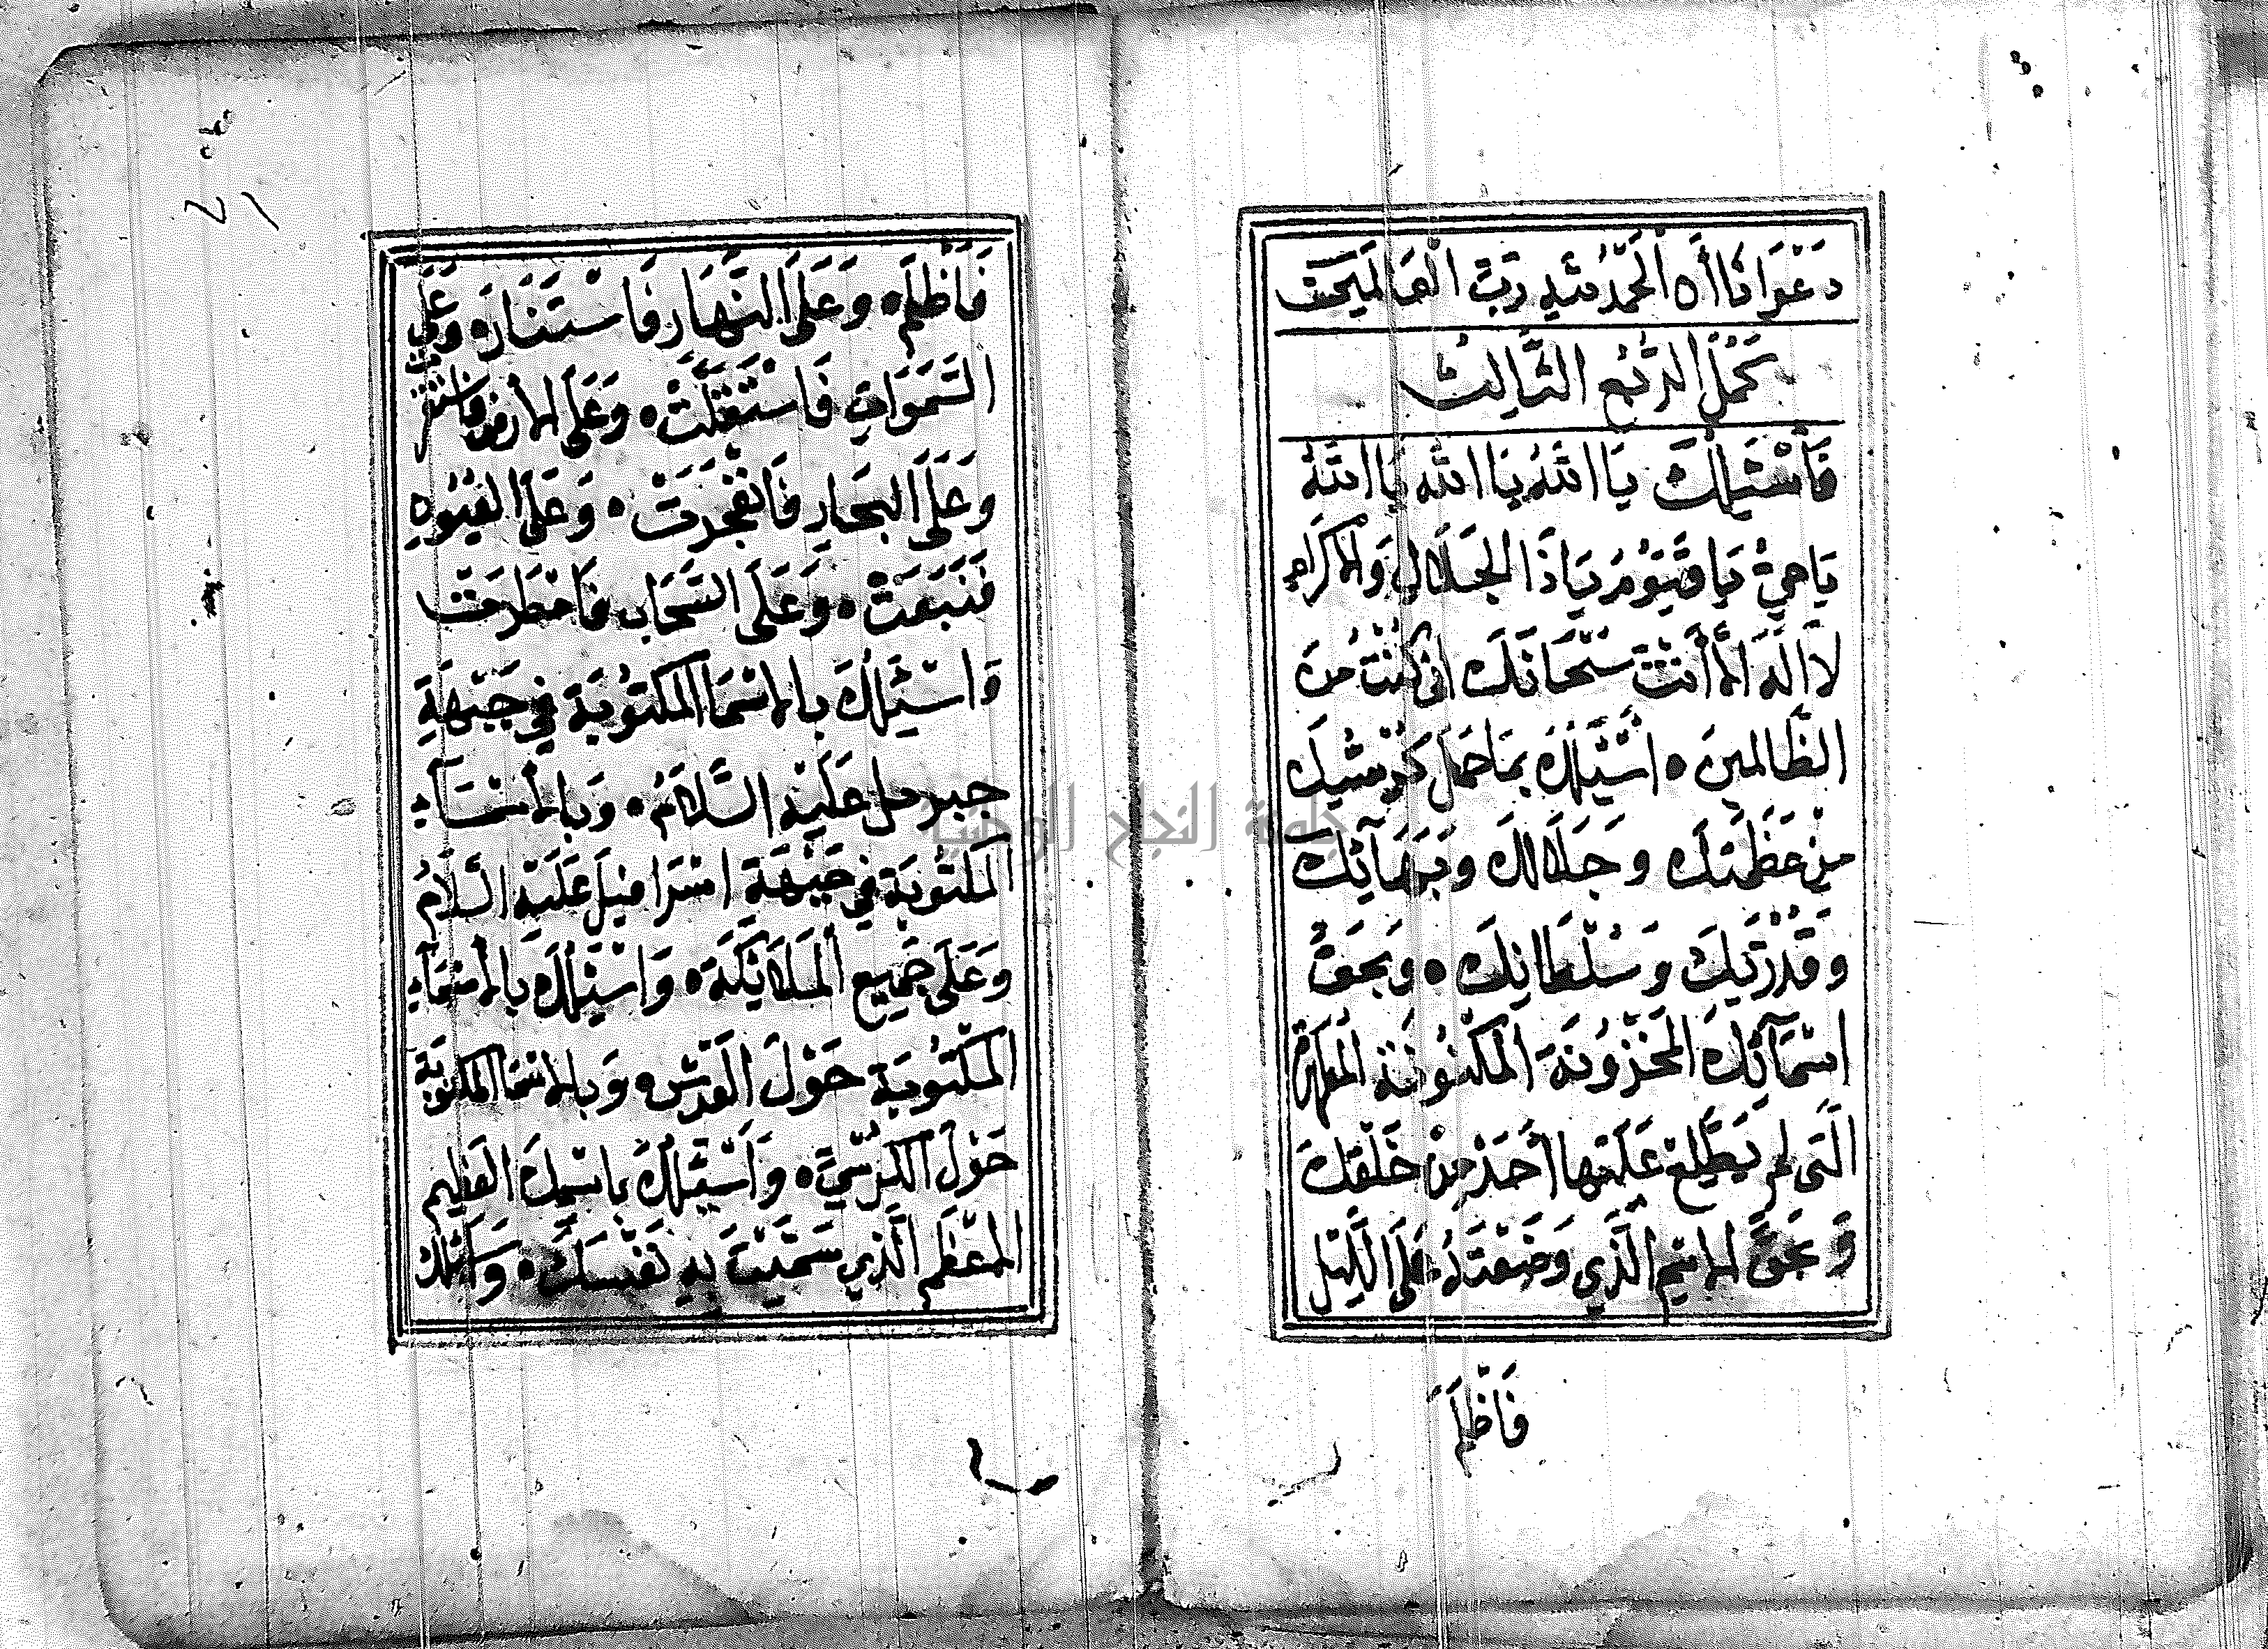 دَعْوَانَا أَنِ الْحَمْدُ لِلَّهِ رَبِّ الْعَالَمِينَ
كَمُلَ الرُّبُعُ الثَّالِثُ
فَأَسْئَلُكَ يَا اللَّهُ يَا اللَّهُ يَا اللَّهُ
يَا حَيُّ يَا قَيُّومُ يَا ذَا الْجَلَالِ وَالْإِكْرَامِ
لَا إِلَهَ إِلَّا أَنْتَ سُبْحَانَكَ إِنِّي كُنْتُ مِنَ
الظَّالِمِينَ ه اسْئَلُكَ بِمَا حَمَلَ كُرْسِيُّكَ
مِنْ عَظَمَتِكَ وَجَلَالِكَ وَبَهَائِكَ
وَقُدْرَتِكَ وَسُلْطَانِكَ ه وَبِحَقِّ
اسْمَآئِكَ الْمَخْزُونَةِ الْمَكْنُونَةِ الْمُطَهَّرَةِ
الَّتِي لَمْ يَطَّلِعْ عَلَيْهَا أَحَدٌ مِنْ خَلْقِكَ
وَبِحَقِّ الْاسْمِ الَّذِي وَضَعْتَهُ عَلَى اللَّيْلِ
فَأَظْلَمَ
فَأَظْلَمَ ه وَعَلَى النَّهَارِ فَاسْتَنَارَ ه وَعَلَى
السَّمَوَاتِ فَاسْتَقَلَّتْ ه وَعَلَى الْأَرْضِ فَاسْتَقَرَّتْ
وَعَلَى الْبِحَارِ فَانْفَجَرَتْ ه وَعَلَى الْعُيُونِ
فَنَبَعَتْ ه وَعَلَى السَّحَابِ فَأَمْطَرَتْ
وَاسْئَلُكَ بِالْاسْمَا الْمَكْتُوبَةِ فِي جَبْهَةِ
جبريل عَلَيْهِ السَّلَامُ ه وَبِالْأَسْمَآءِ
الْمَكْتُوبَةِ فِي جَبْهَةِ اسْرَافِيلَ عَلَيْهِ السَّلَامُ
وَعَلَى جَمِيعِ الْمَلَائِكَةِ ه وَاسْئَلُكَ بِالْأَسْمَآءِ
الْمَكْتُوبَةِ حَوْلَ الْعَرْشِ ه وَبِالْاسْمَا الْمَكْتُوبَةِ
حَوْلَ الْكُرْسِيِّ ه وَأَسْئَلُكَ بِاسْمِكَ الْعَظِيمِ
الْمُعَظَّمِ الَّذِي سَمَّيْتَ بِهِ نَفْسَكَ ه وَأَسْئَلُكَ
جامعة النجاح الوطنية